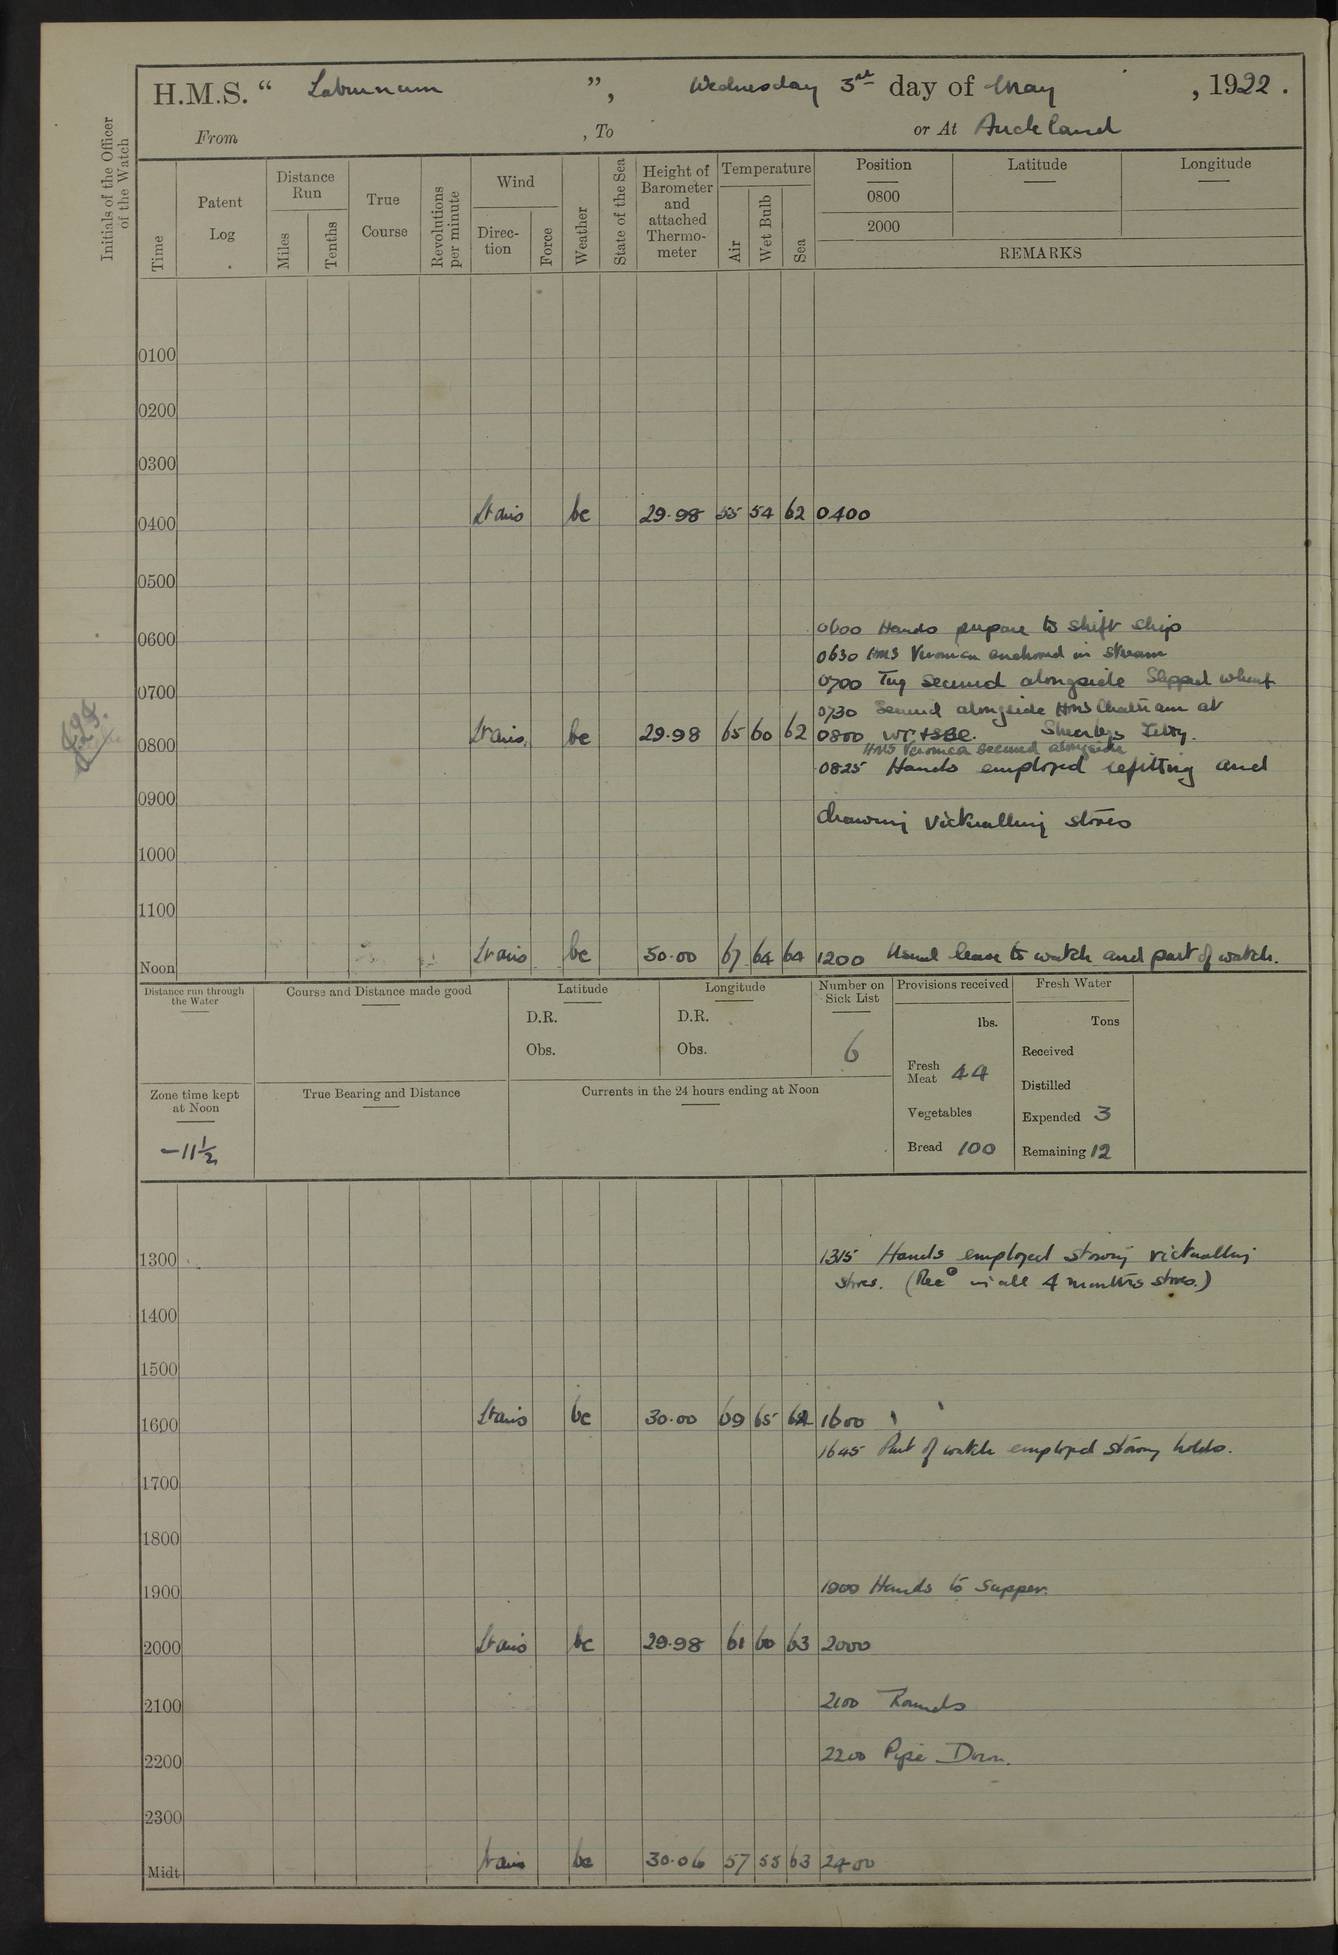 H.M.S. “ Labunum ”, Wednesday 3rd day of May , 1922 .
From , To or At Auckland
Initials of the Officer of the Watch
Time
Patent Log
Distance Run
Miles
Tenths
True Course
Revolutions per minute
Wind
Direction
Force
Weather
State of the Sea
Height of Barometer and attached Thermometer
Temperature
Air
Wet Bulb
Sea
Position Latitude Longitude
0800
2000
REMARKS
0100
0200
0300
0400 Lt airs bc 29.98 55 54 62 0400
0500
0600 Hands prepare to shift ship
0630 HMS Veronica anchored in stream
0700 Tug secured alongside Slipped wharf
0730 Secured alongside HMS Chatham at
0800 Lt airs bc 29.98 65 60 62 0800 Sheerlegs Jetty.
HMS Veronica secured alongside
0825 Hands employed refitting and
0900
drawing victualling stores
1000
1100
Noon Lt airs bc 30.00 67 64 64 1200 Usual leave to watch and part of watch.
Distance run through the Water
Course and Distance made good
Latitude
D.R.
Obs.
Longitude
D.R.
Obs.
Number on Sick List
6
Provisions received
lbs.
Fresh Meat 44
Vegetables
Bread 100
Fresh Water
Tons
Received
Distilled
Expended 3
Remaining 12
Zone time kept at Noon
-11½
True Bearing and Distance
Currents in the 24 hours ending at Noon
1300 1315 Hands employed stowing victualling
stores. (Recd in all 4 months stores.)
1400
1500
1600 Lt airs bc 30.00 69 65 64 1600
1645 Part of watch employed stowing holds.
1700
1800
1900 1900 Hands to supper.
2000 Lt airs bc 29.98 61 60 63 2000
2100 2100 Rounds
2200 2200 Pipe Down.
2300
Midt Lt airs bc 30.06 57 55 63 2400